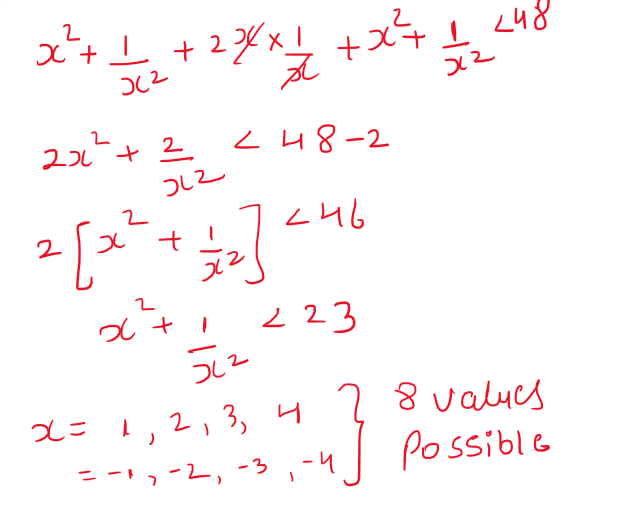 x² + 1/x² + 2x × 1/x + x² + 1/x² < 48
2x² + 2/x² < 48 - 2
2[x² + 1/x²] < 46
x² + 1/x² < 23
x = 1, 2, 3, 4 } 8 values
= -1, -2, -3, -4 } Possible